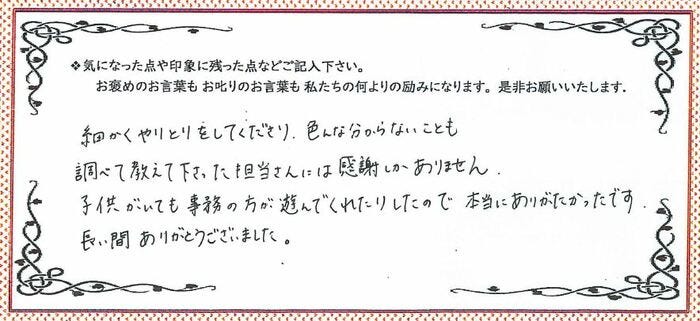 ❖気になった点や印象に残った点などご記入下さい。
お褒めのお言葉も お叱りのお言葉も 私たちの何よりの励みになります。是非お願いいたします.
細かくやりとりをしてくださり、色んな分からないことも
調べて教えて下さった担当さんには感謝しかありません.
子供がいても事務の方が遊んでくれたりしたので本当にありがたかったです.
長い間ありがとうございました。